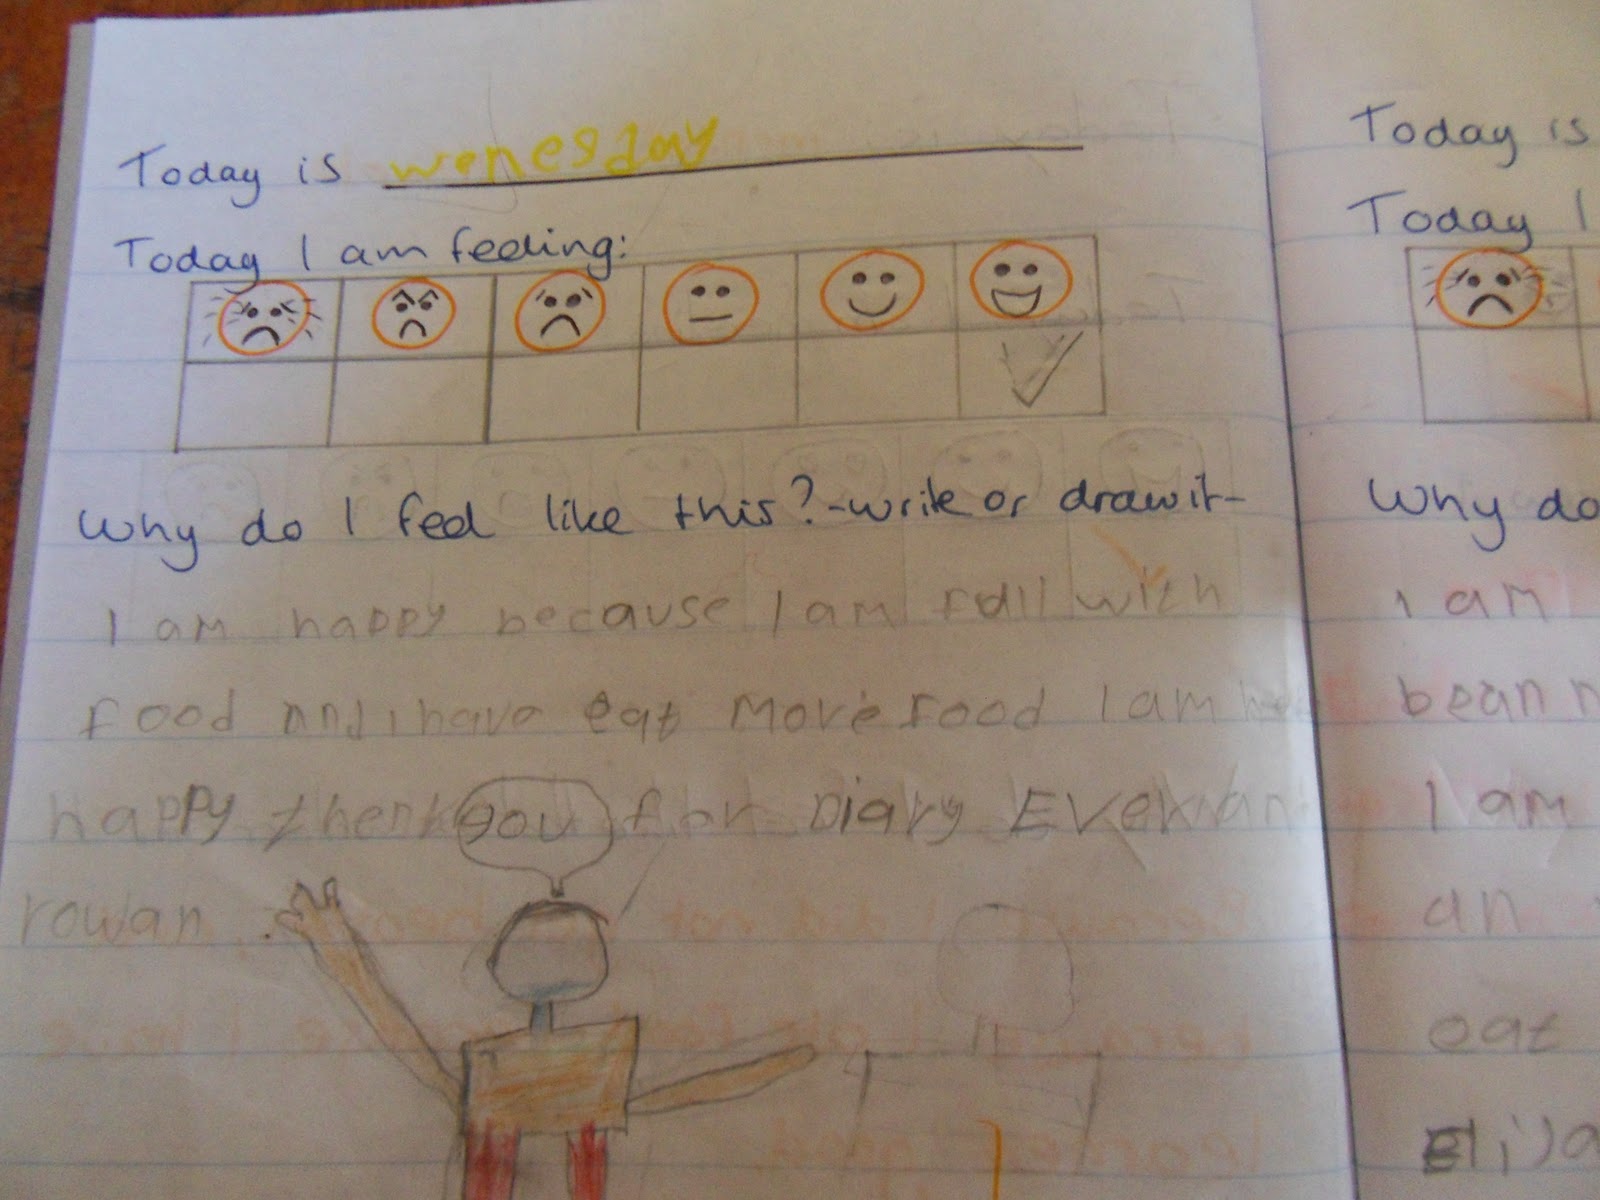 Today is wenesday
Today I am feeling:
Why do I feel like this? - write or draw it -
I am happy because I am fall with
food and i have eat more food I am
happy thenk you for Diary Everwan
rowan.
Today is
Today I
Why do
I am
bean n
I am
an
eat
Elija